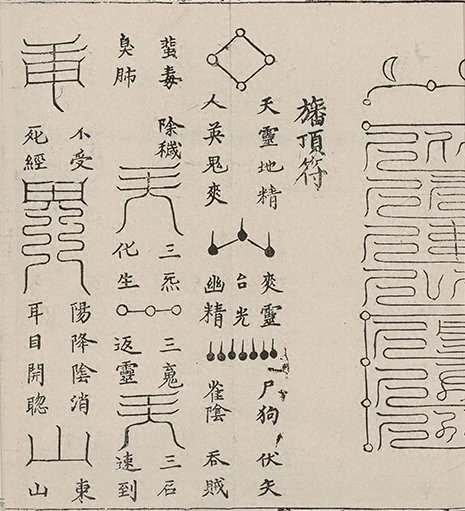 旛頂符
天靈地精
人英鬼爽
爽靈
台光
幽精
尸狗
伏矢
雀陰
吞賊
蜚毒
臭肺
除穢
三炁
化生
三䰟
返靈
三石
速到
不受
死經
陽降陰消
耳目開聰
東
山